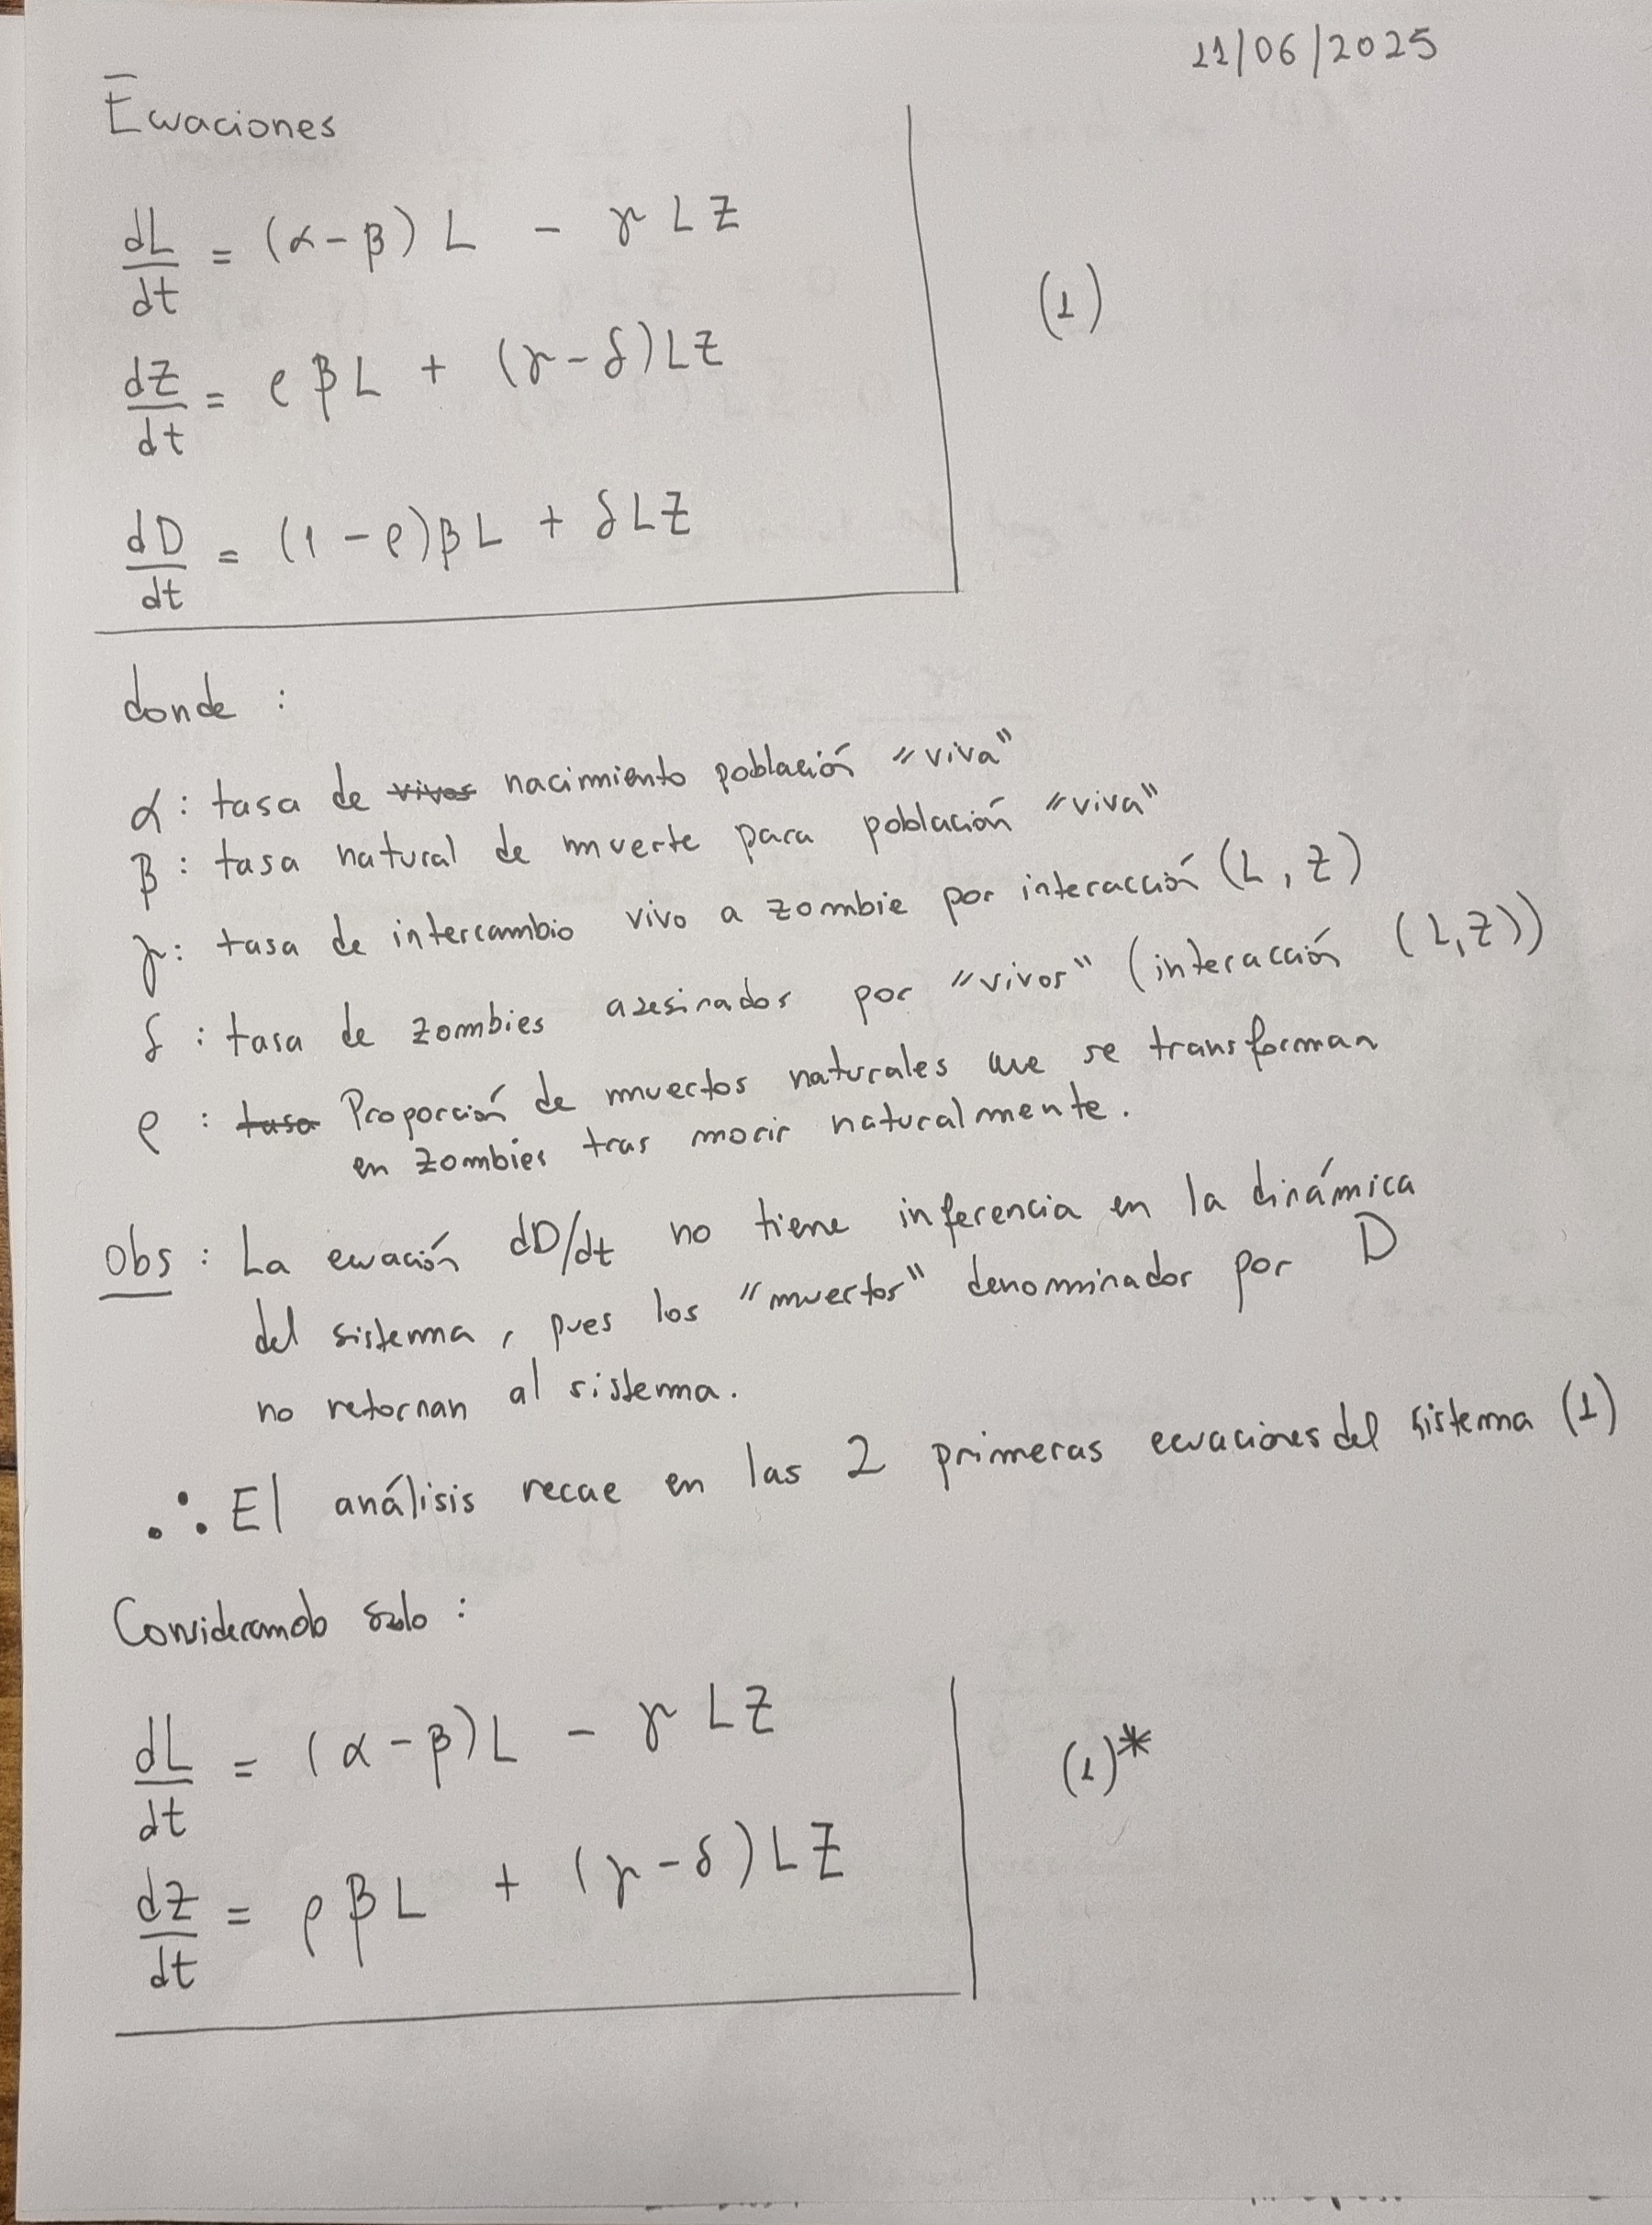 11/06/2025
Ecuaciones
dL/dt = (α-β) L - γ L Z
(1)
dZ/dt = ρ β L + (γ-δ) L Z
dD/dt = (1-ρ) β L + δ L Z
donde :
α : tasa de vivos nacimiento población "viva"
β : tasa natural de muerte para población "viva"
γ : tasa de intercambio vivo a zombie por interacción (L, Z)
δ : tasa de zombies asesinados por "vivos" (interacción (L,Z))
ρ : tasa Proporción de muertos naturales que se transforman
en zombies tras morir naturalmente.
Obs : La ecuación dD/dt no tiene inferencia en la dinámica
del sistema, pues los "muertos" denominados por D
no retornan al sistema.
∴ El análisis recae en las 2 primeras ecuaciones del sistema (1)
Considerando solo :
dL/dt = (α-β) L - γ L Z
(1)*
dZ/dt = ρ β L + (γ-δ) L Z